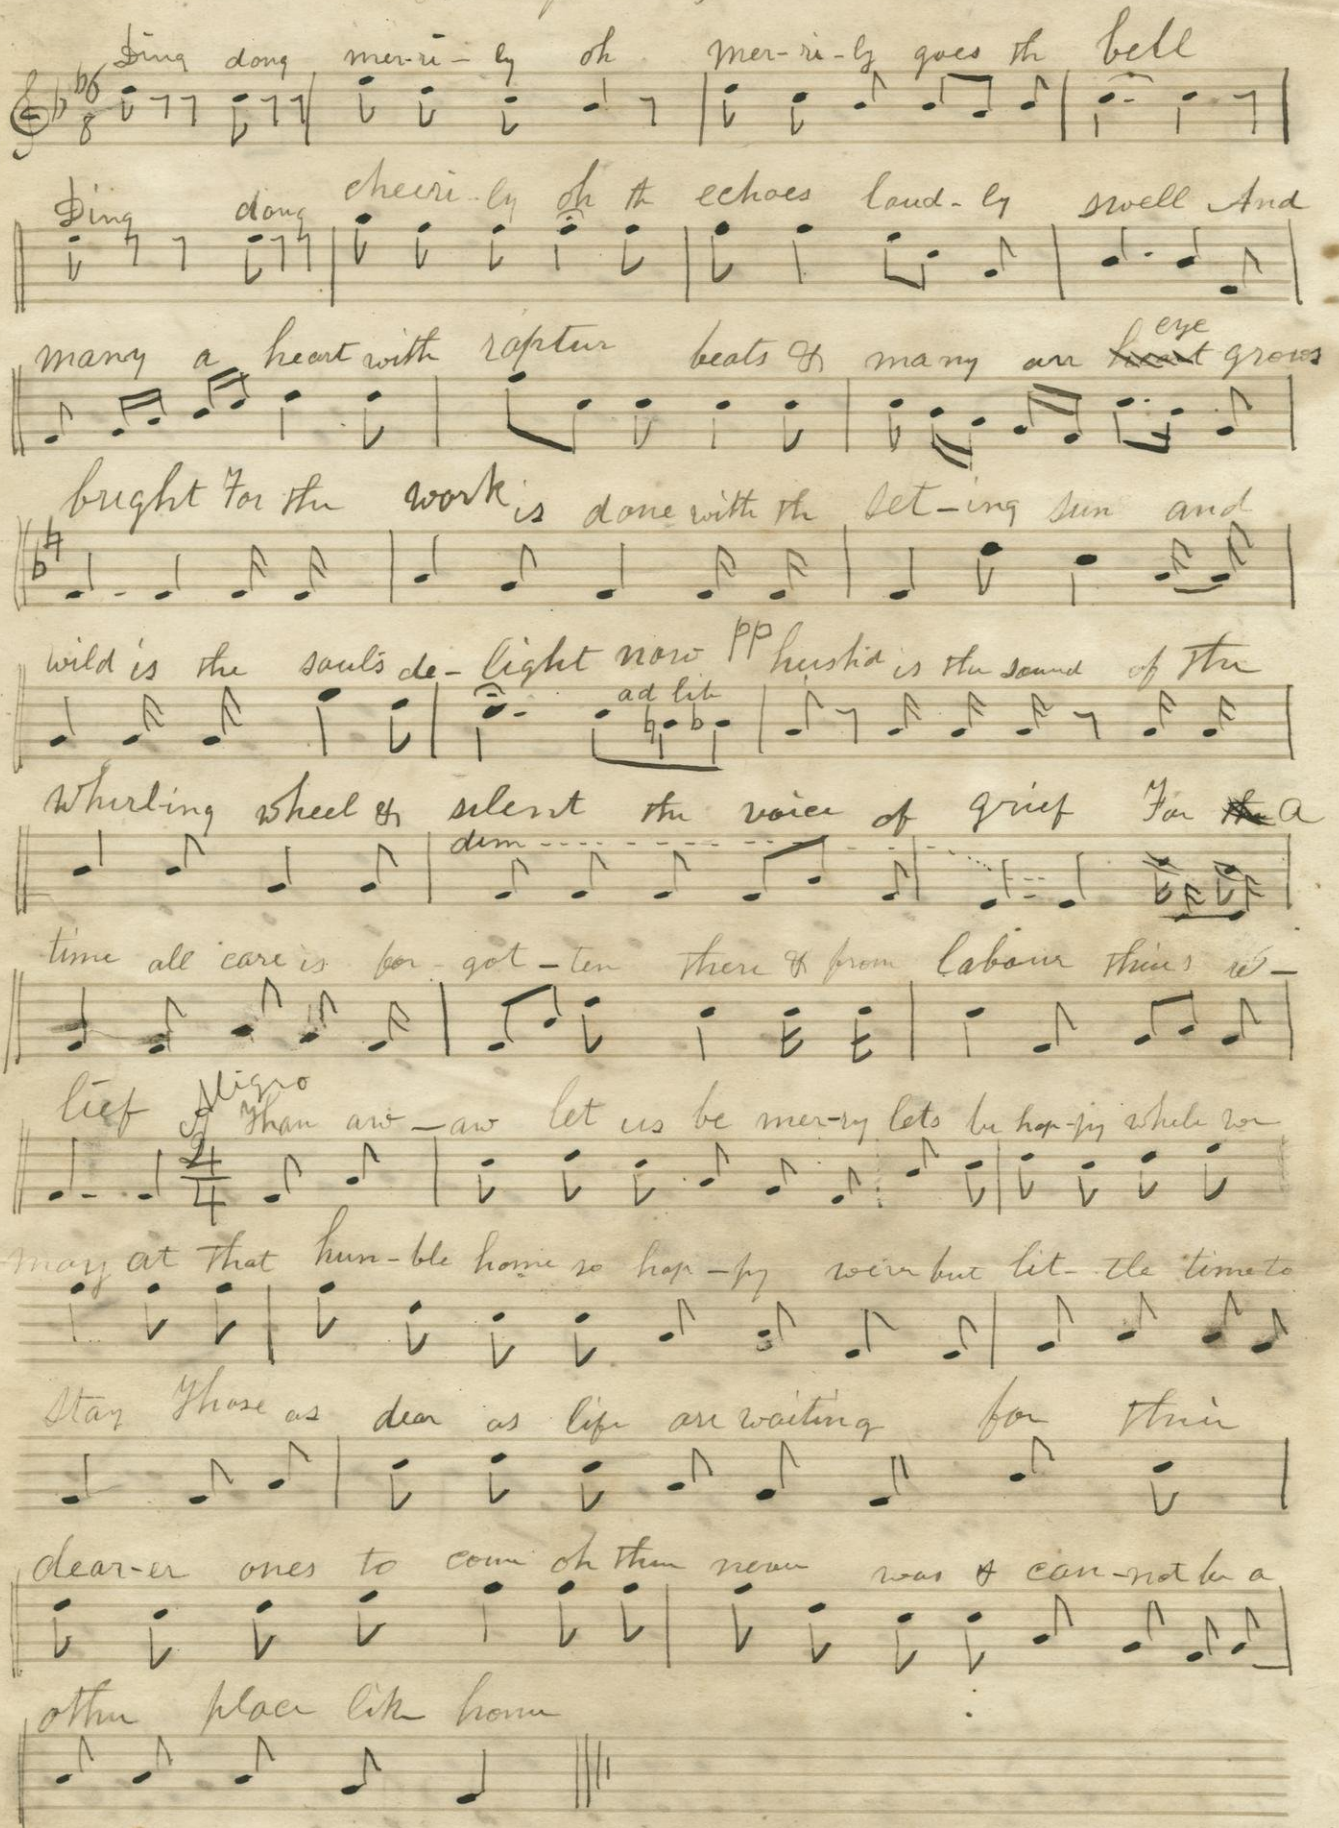 Ding dong mer-ri-ly oh mer-ri-ly goes th bell
6
8
Ding dong cheeri-ly oh th echoes loud-ly swell And
eye
many a heart with raptur beats & many an heart grows
bright For the work is done with th set-ing sun and
wild is the souls de-light now pp hush'd is the sound of the
ad lib
whirl-ing wheel & silent the voice of grief For the a
dim
time all care is for-got-ten there & from labour thier re-
Aligro
lief Than aw-aw let us be mer-ry lets be hap-py while we
2
4
may at that hum-ble home so hap-py were but lit-tle time to
stay Those as dear as life are waiting for thier
dear-er ones to come oh then never was & can-not be a
other place like home